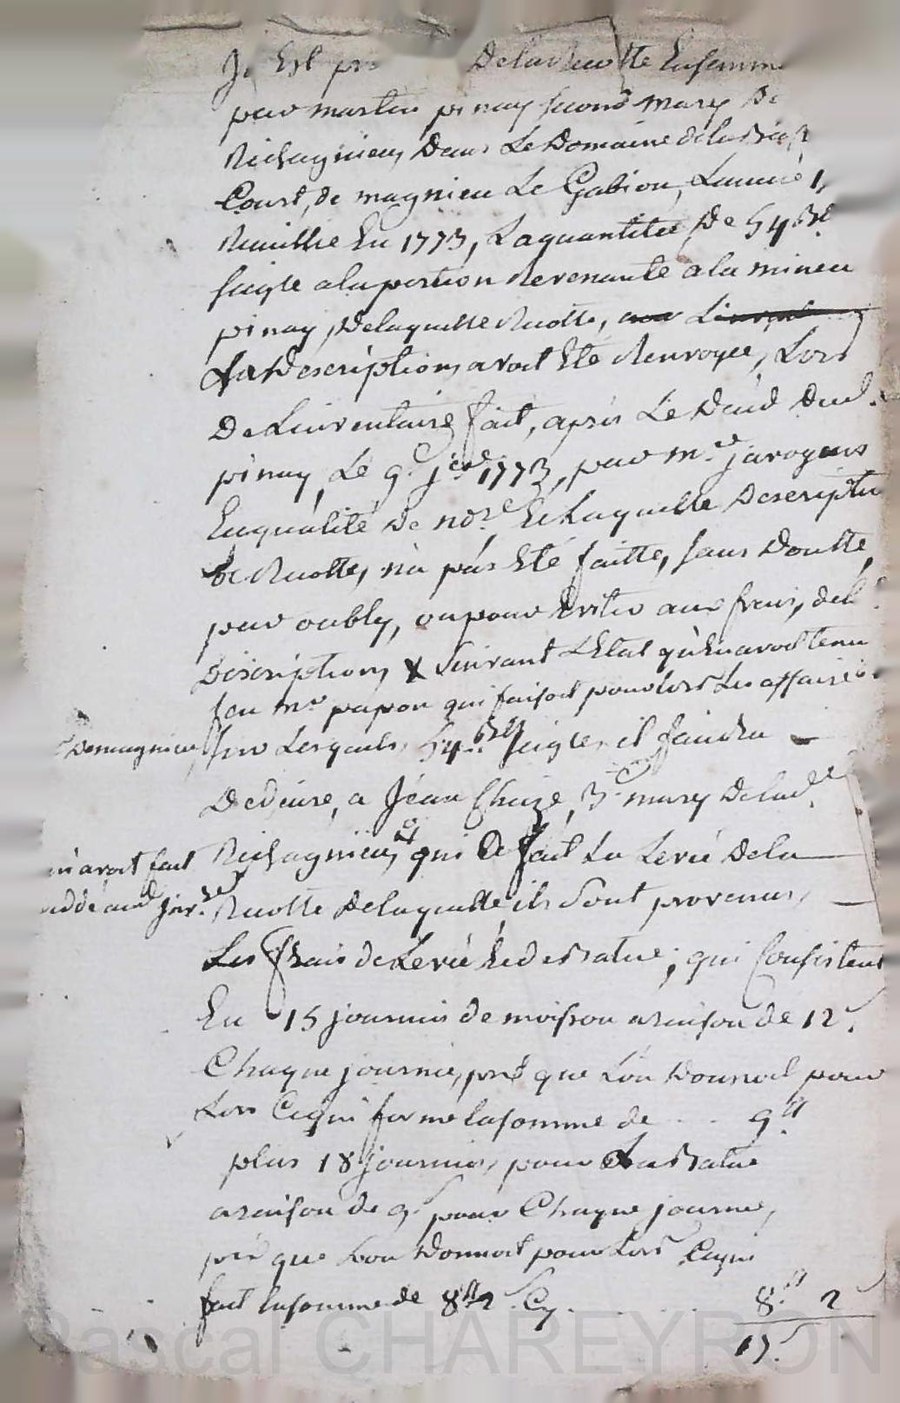 Il Est pro Delarecotte Ensemencé
par martin pinay second mary De
Richagnieu, Dans Le Domaine
Court, de magnieu Le Gabion, Lannée
Recuillie En 1773, Laquantitée De 54
seigle ala portion Revenante ala mineu
pinay, Delaquelle Recotte,
La Description, avoit Eté Renvoyée, Lors
De Linventaire, fait, apres Le Décéd Dud.
pinay, Le 9e 1773, par me javogues
Enqualité De nore, Et Laquelle Descriptio
De Recotte, n'a pas Eté faitte, sans Doutte,
par oubly, ou pour Eviter aux frais, de la
Discription, & suivant L'Etat qu'En avoit tenu
feu mr papon qui faisoit pour lors Les affaires
Demagnieu, sur Lesquels, 54 seigle, il faudra
Deduire, a Jean Chaize, 3e mary Delad.
n'avoit fait Richagnieu, qui a fait La Levée Dela
Recotte Delaquelle, ils sont provenus,
Les frais de Levée Et de Batue; qui Consistent
En 15 journées de moisson araison de 12s.
Chaque journée, prix que L'on Donnoit pour
Lors Cequi forme lasomme de 9tt
plus 18 journées, pour La Batue
araison de 9s pour Chaque journé,
prix que Lon Donnoit pour Lors Cequi
fait lasomme de 8tt 2s Cy 8tt 2
17
Pascal CHAREYRON